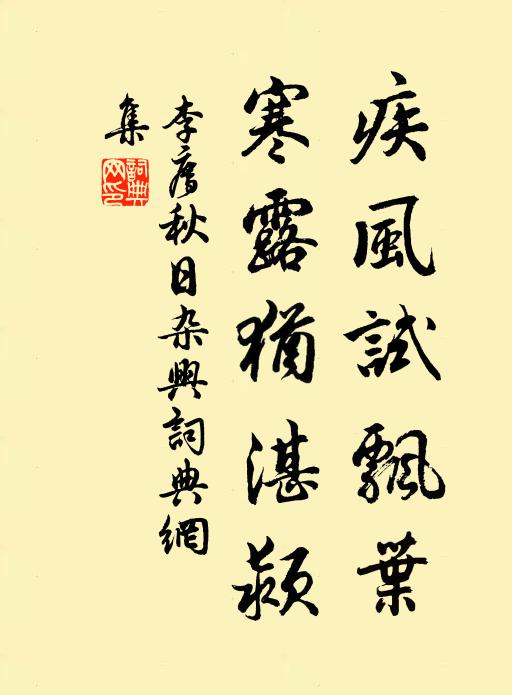 疾風試飄葉
寒露猶湛蘋
李廌秋日杂興詞典網
集
詞典
网印